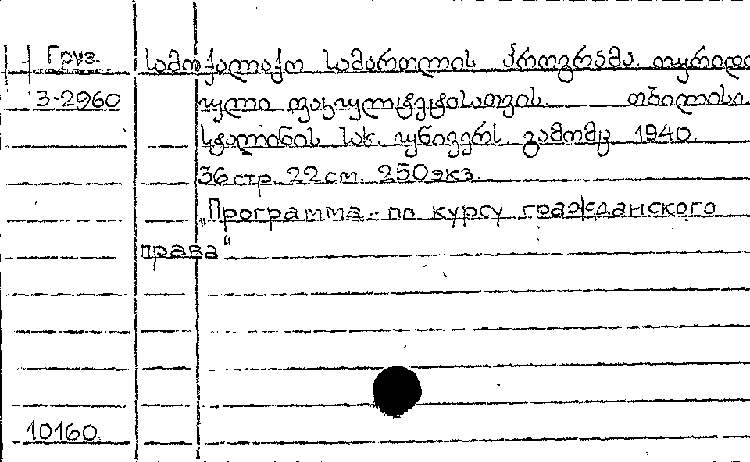 Груз. სამოქალაქო სამართლის პროგრამა. იურიდი
3-2960 ული ფაკულტეტისათვის. თბილისი.
სტალინის სახ. უნივერს. გამომც. 1940.
36 стр. 22 см. 250 экз.
„Программа по курсу гражданского
права“
10160.